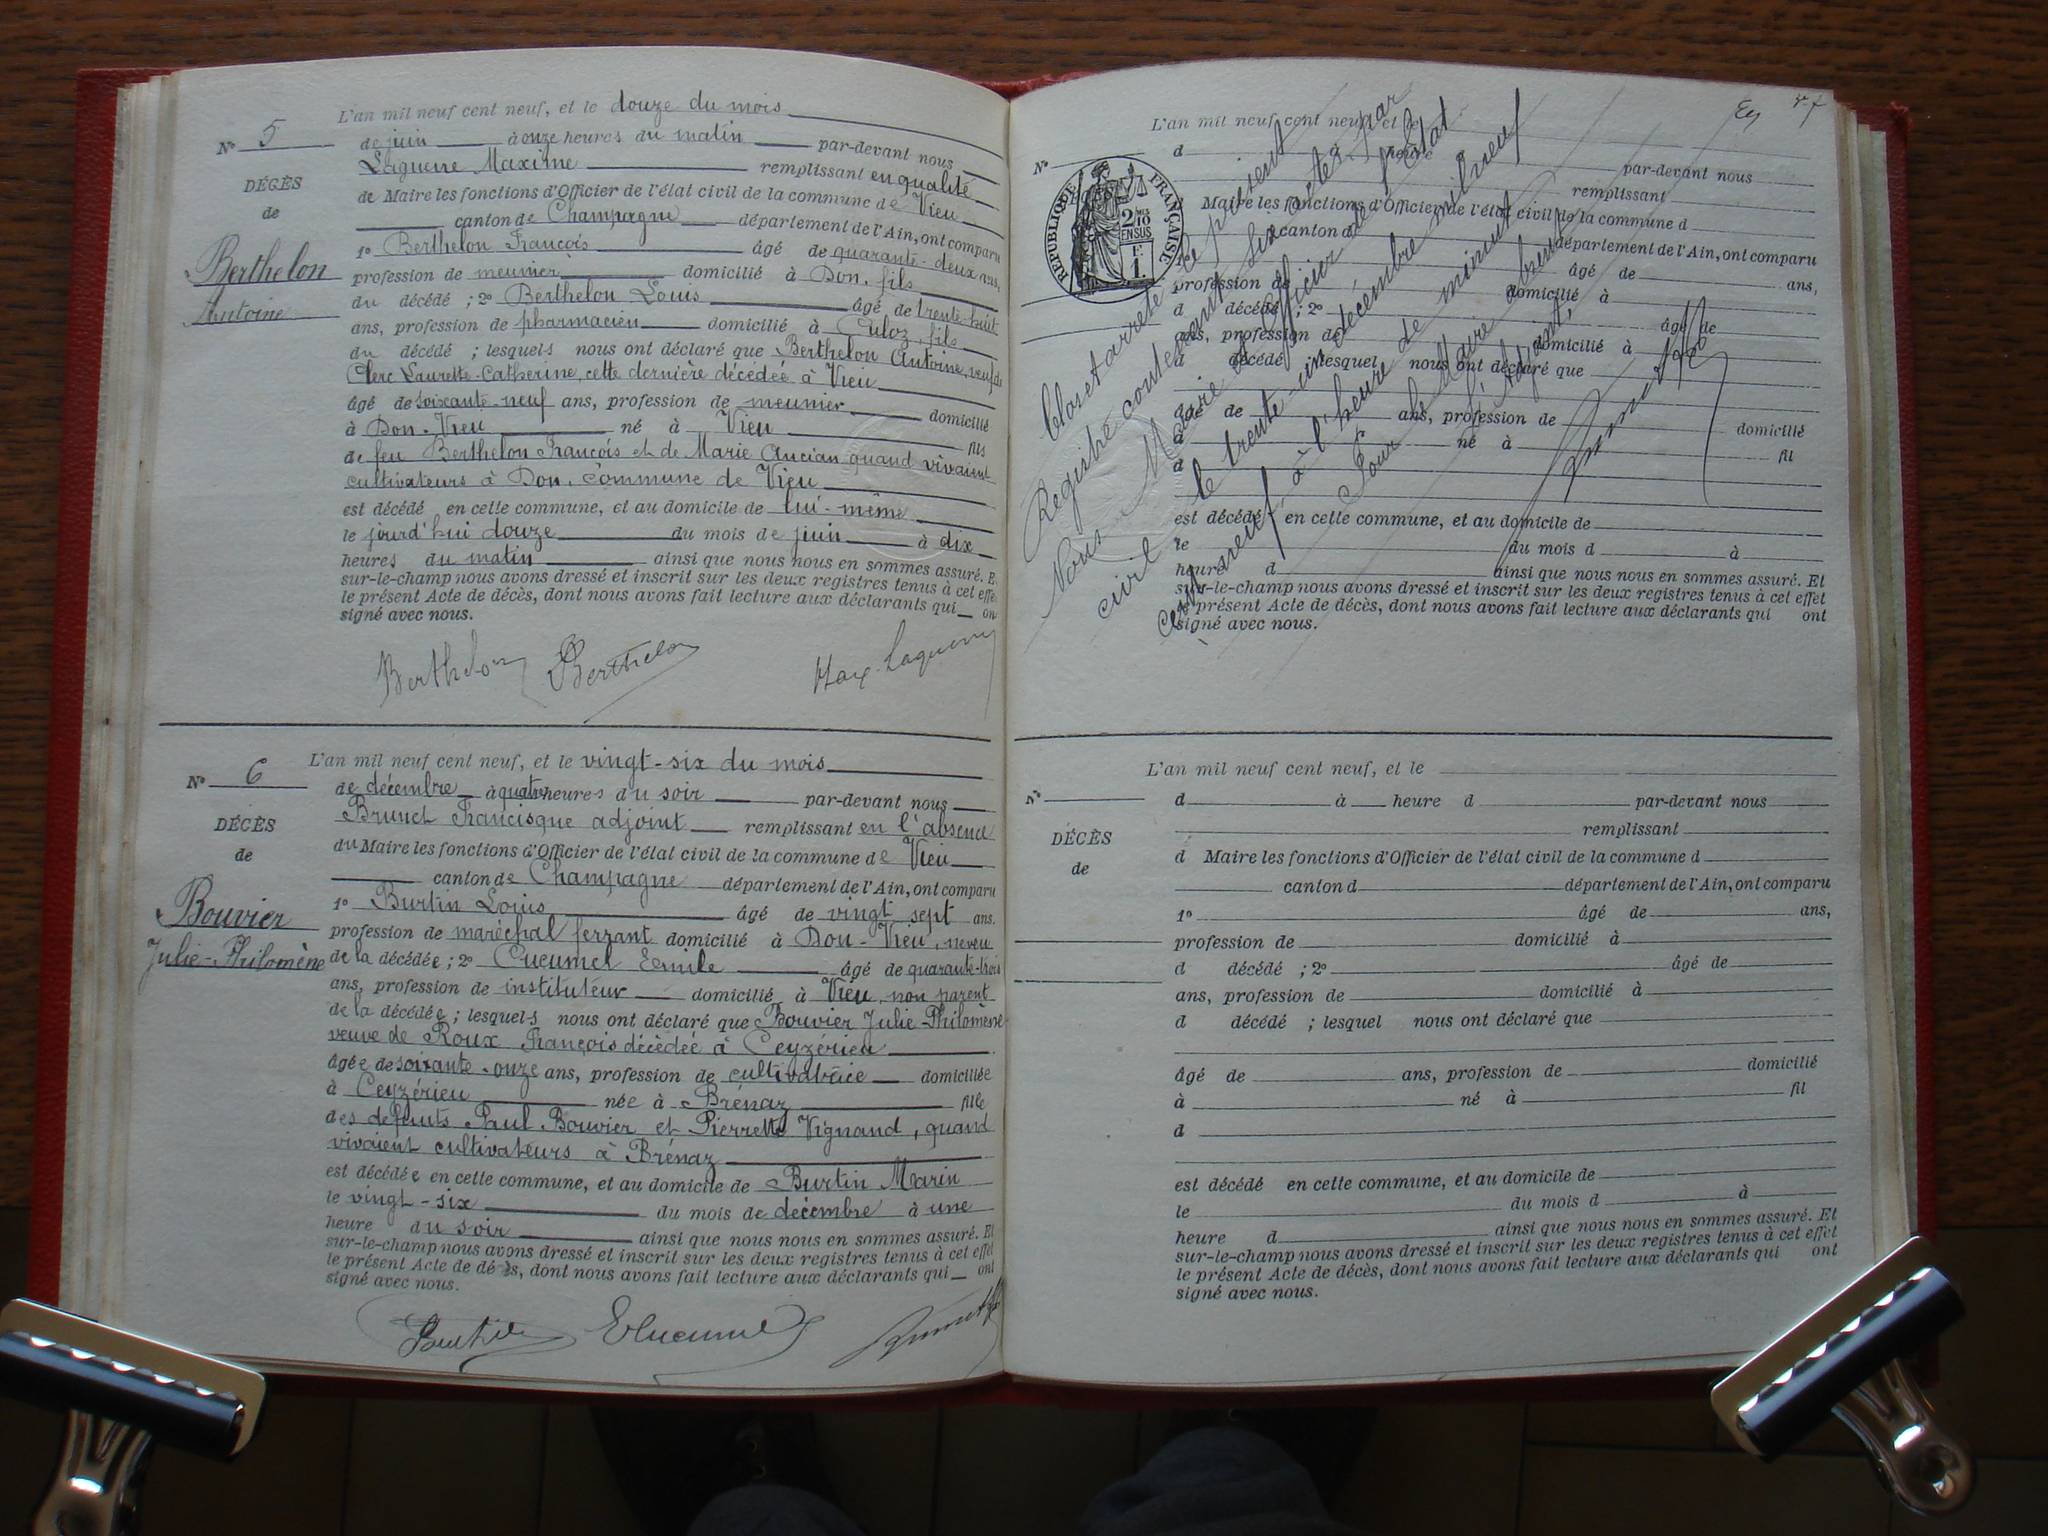 L'an mil neuf cent neuf, et le douze du mois
N° 5
de juin à onze heures du matin par-devant nous
Laguerre Maxime remplissant en qualité
DÉCÈS
de Maire les fonctions d'Officier de l'état civil de la commune de Vieu
de
canton de Champagne département de l'Ain, ont comparu
1° Berthelon François âgé de quarante-deux ans,
Berthelon
profession de meunier domicilié à Don, fils
Antoine
du décédé ; 2° Berthelon Louis âgé de trente-huit
ans, profession de pharmacien domicilié à Culoz, fils
du décédé ; lesquels nous ont déclaré que Berthelon Antoine, veuf de
Clerc Laurette-Catherine, cette dernière décédée à Vieu
âgé de soixante-neuf ans, profession de meunier domicilié
à Don-Vieu né à Vieu fils
de feu Berthelon François et de Marie Ancian quand vivaient
cultivateurs à Don, commune de Vieu
est décédé en cette commune, et au domicile de lui-même
le jourd'hui douze du mois de juin à dix
heures du matin ainsi que nous nous en sommes assuré. Et
sur-le-champ nous avons dressé et inscrit sur les deux registres tenus à cet effet
le présent Acte de décès, dont nous avons fait lecture aux déclarants qui ont
signé avec nous.
Berthelon Berthelon Max Laguerre
L'an mil neuf cent neuf, et le vingt-six du mois
N° 6
de décembre à quatre heures du soir par-devant nous
Brunet Francisque adjoint remplissant en l'absence
DÉCÈS
du Maire les fonctions d'Officier de l'état civil de la commune de Vieu
de
canton de Champagne département de l'Ain, ont comparu
1° Burtin Louis âgé de vingt sept ans.
Bouvier
profession de maréchal ferrant domicilié à Don-Vieu, neveu
Julie-Philomène
de la décédée ; 2° Cucumel Emile âgé de quarante-trois
ans, profession de instituteur domicilié à Vieu, non parent
de la décédée ; lesquels nous ont déclaré que Bouvier Julie-Philomène
veuve de Roux François décédée à Ceyzérieu
âgée de soixante-onze ans, profession de cultivatrice domiciliée
à Ceyzérieu née à Brénaz fille
des defunts Paul Bouvier et Pierrette Vignand, quand
vivaient cultivateurs à Brénaz
est décédée en cette commune, et au domicile de Burtin Marin
le vingt-six du mois de décembre à une
heure du soir ainsi que nous nous en sommes assuré. Et
sur-le-champ nous avons dressé et inscrit sur les deux registres tenus à cet effet
le présent Acte de décès, dont nous avons fait lecture aux déclarants qui ont
signé avec nous.
Burtin ECucumel Brunet
L'an mil neuf cent neuf, et le
N°
d à heure d par-devant nous
remplissant
RÉPUBLIQUE FRANÇAISE
2/10 EN SUS
F 1.
Maire les fonctions d'Officier de l'état civil de la commune d
canton d département de l'Ain, ont comparu
1° âgé de ans,
profession de domicilié à
d décédé ; 2° âgé de
ans, profession de domicilié à
d décédé ; lesquel nous ont déclaré que
âgé de ans, profession de domicilié
à né à fil
d
est décédé en cette commune, et au domicile de
le du mois d à
heure d ainsi que nous nous en sommes assuré. Et
sur-le-champ nous avons dressé et inscrit sur les deux registres tenus à cet effet
le présent Acte de décès, dont nous avons fait lecture aux déclarants qui ont
signé avec nous.
Clos et arrêté le présent
Registre contenant six actes par
Nous Maire et officier de l'état
civil le trente-un décembre mil neuf
cent neuf, à l'heure de minuit
Pour le Maire absent
l'Adjoint,
Brunet
L'an mil neuf cent neuf, et le
N°
d à heure d par-devant nous
remplissant
DÉCÈS
d Maire les fonctions d'Officier de l'état civil de la commune d
de
canton d département de l'Ain, ont comparu
1° âgé de ans,
profession de domicilié à
d décédé ; 2° âgé de
ans, profession de domicilié à
d décédé ; lesquel nous ont déclaré que
âgé de ans, profession de domicilié
à né à fil
d
est décédé en cette commune, et au domicile de
le du mois d à
heure d ainsi que nous nous en sommes assuré. Et
sur-le-champ nous avons dressé et inscrit sur les deux registres tenus à cet effet
le présent Acte de décès, dont nous avons fait lecture aux déclarants qui ont
signé avec nous.